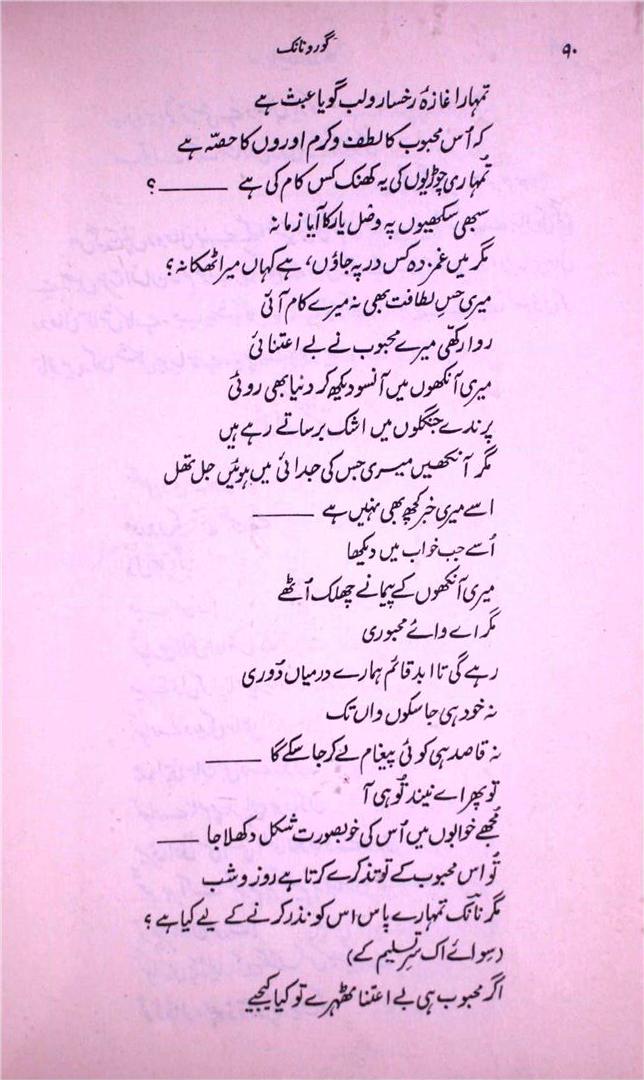 ۹۰
گورونانک
تمہارا غازۂ رخسار و لب گویا عبث ہے
کہ اُس محبوب کا لطف و کرم اوروں کا حصّہ ہے
تُمہاری چوڑیوں کی یہ کھنک کس کام کی ہے ـــــــــ؟
سبھی سکھیوں پہ وصل یار کا آیا زمانہ
مگر میں غمزدہ کس در پہ جاؤں، ہے کہاں میرا ٹھکانہ؟
میری حسِ لطافت بھی نہ میرے کام آئی
روا رکھّی میرے محبوب نے بے اعتنائی
میری آنکھوں میں آنسو دیکھ کر دنیا بھی روئی
پرندے جنگلوں میں اشک برساتے رہے ہیں
مگر آنکھیں میری جس کی جدائی میں ہوئیں جل تھل
اسے میری خبر کچھ بھی نہیں ہے ـــــــــ
اُسے جب خواب میں دیکھا
میری آنکھوں کے پیمانے چھلک اُٹھے
مگر اے وائے مجبوری
رہے گی تا ابد قائم ہمارے درمیاں دُوری
نہ خود ہی جا سکوں واں تک
نہ قاصد ہی کوئی پیغام لے کر جا سکے گا ـــــــــ
تو پھر اے نیند تُو ہی آ
مُجھے خوابوں میں اُس کی خوبصورت شکل دکھلا جا ـــــــــ
تُو اس محبوب کے تو تذکرے کرتا ہے روز و شب
مگر نانک تمہارے پاس اس کو نذر کرنے کے لیے کیا ہے؟
(سوائے اک سرِ تسلیم کے)
اگر محبوب ہی بے اعتنا ٹھہرے تو کیا کیجیے